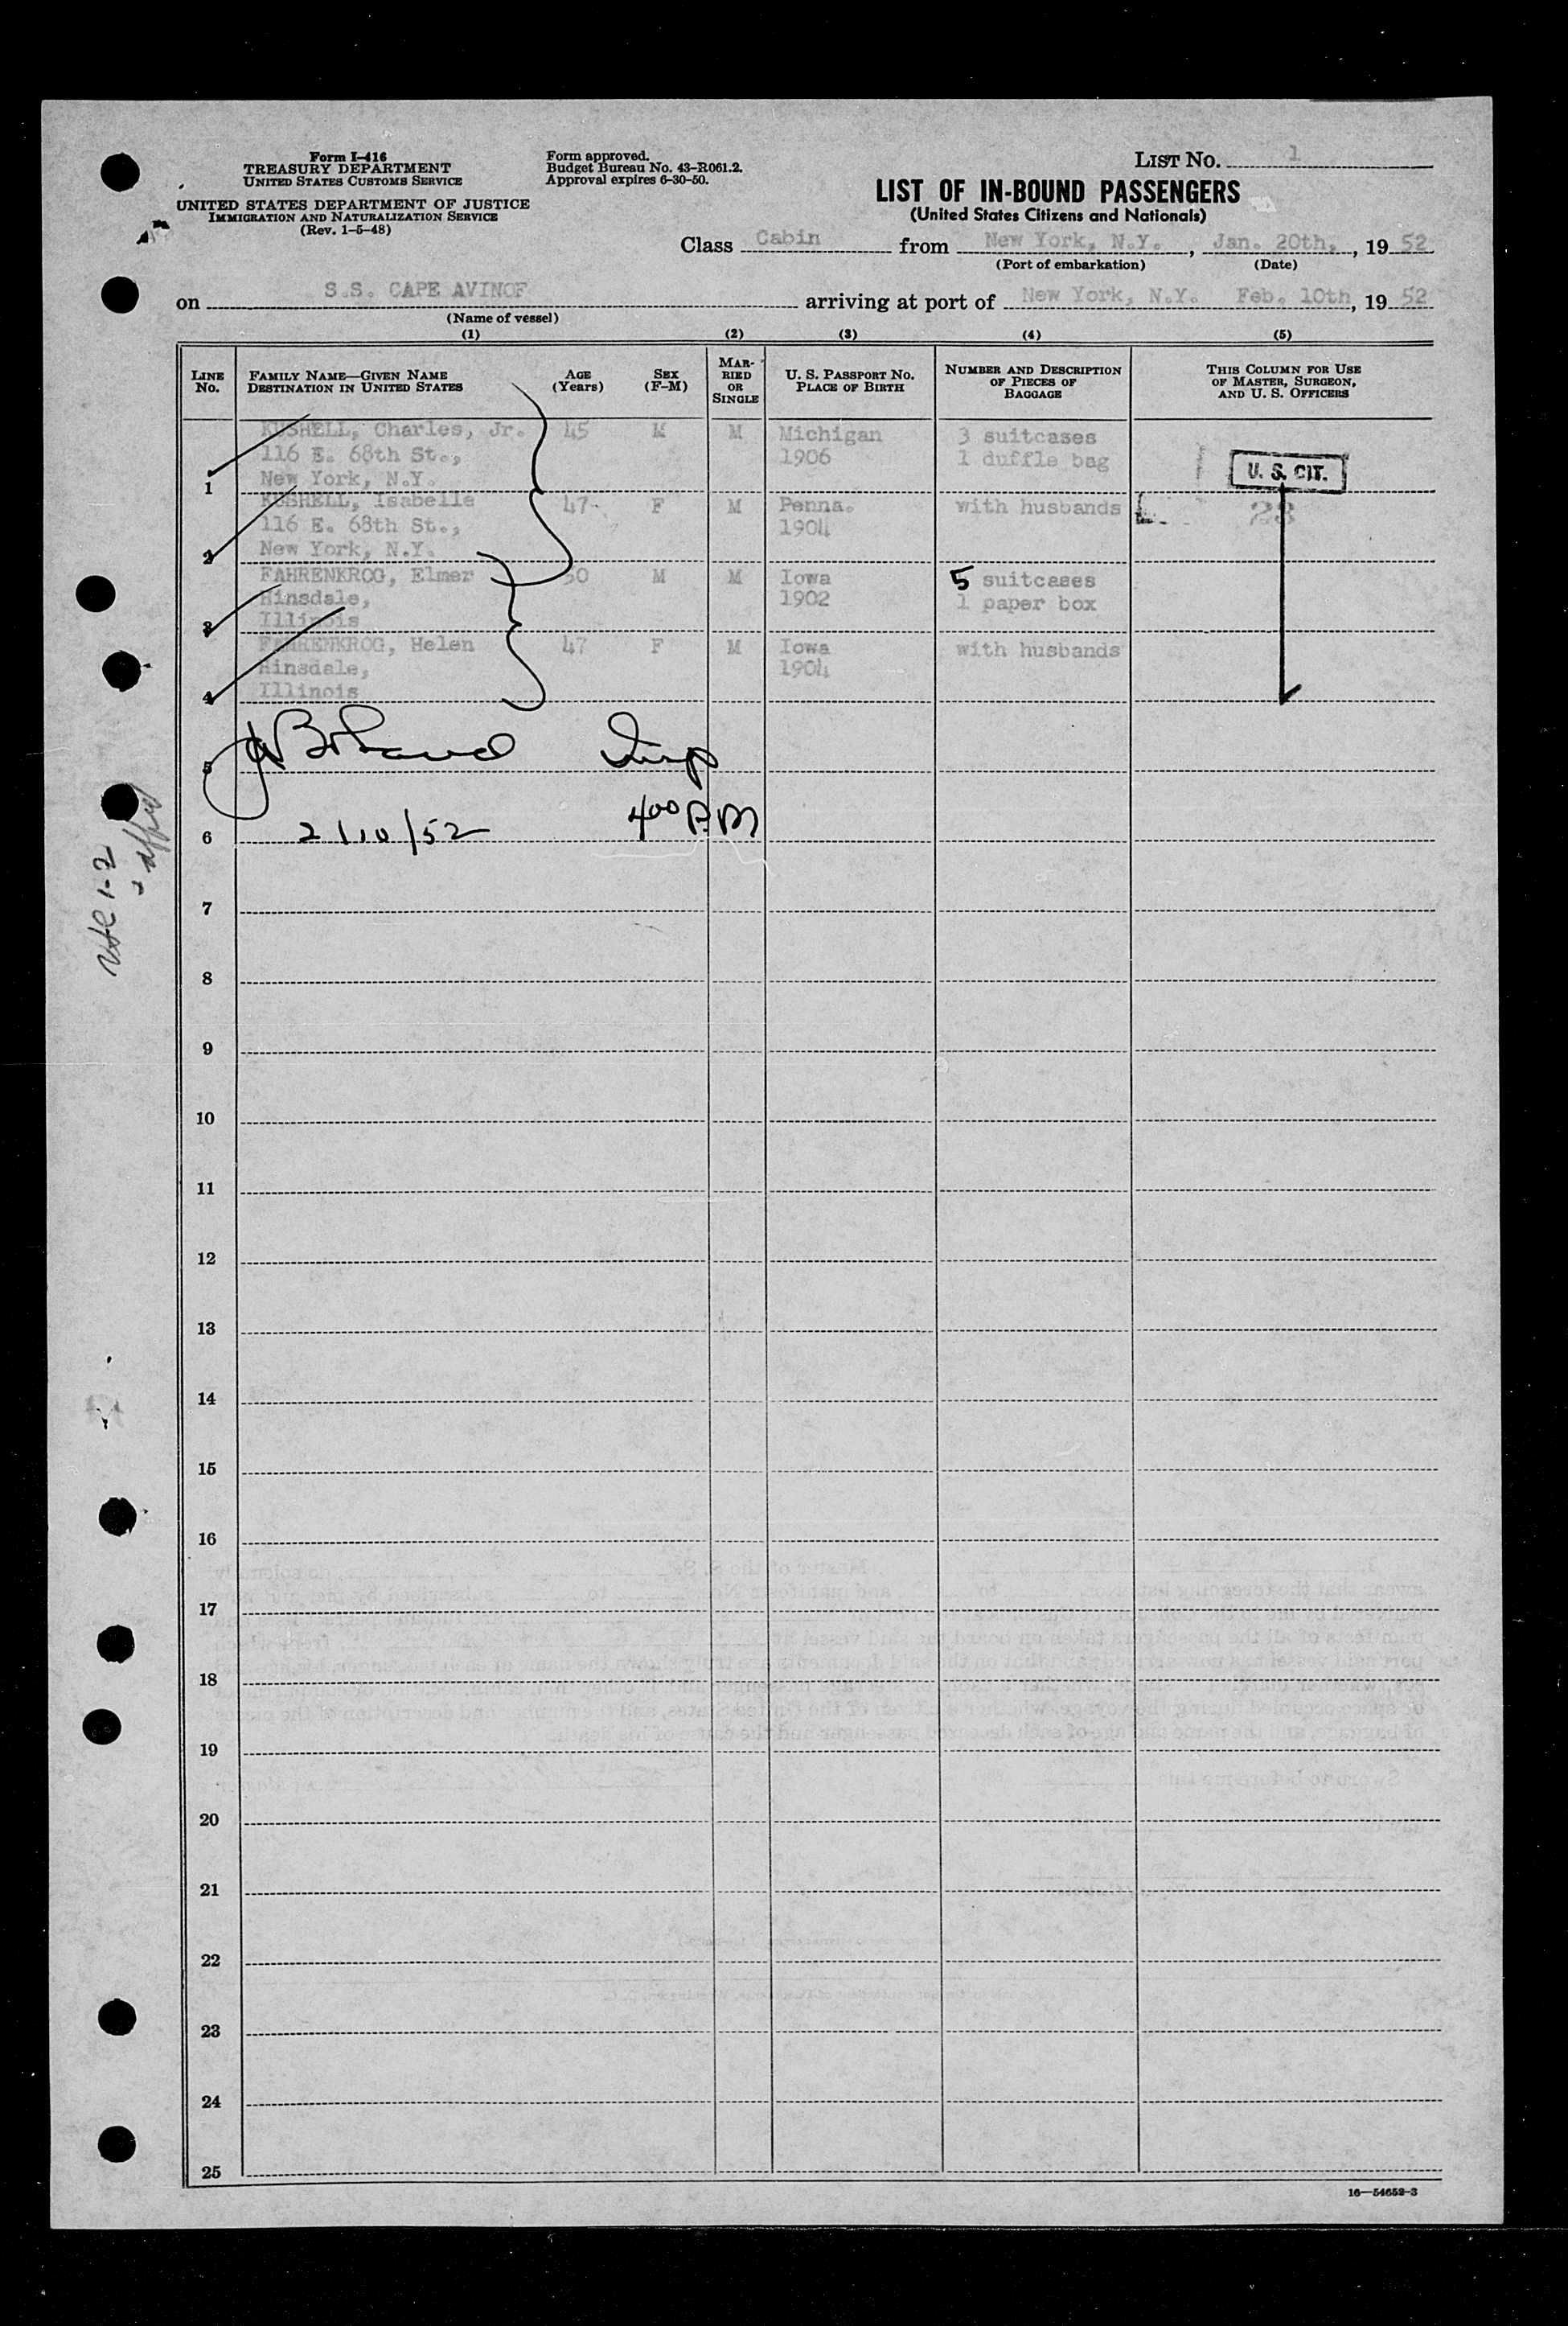 Form I-416
TREASURY DEPARTMENT
UNITED STATES CUSTOMS SERVICE
UNITED STATES DEPARTMENT OF JUSTICE
IMMIGRATION AND NATURALIZATION SERVICE
(Rev. 1-5-48)
Form approved.
Budget Bureau No. 43-R061.2.
Approval expires 6-30-50.
LIST NO. 1
LIST OF IN-BOUND PASSENGERS
(United States Citizens and Nationals)
Class Cabin from New York, N.Y., Jan. 20th, , 19 52
(Port of embarkation) (Date)
on S.S. CAPE AVINOF arriving at port of New York, N.Y. Feb. 10th, 19 52
(Name of vessel)
(1) (2) (3) (4) (5)
LINE No.
FAMILY NAME—GIVEN NAME
DESTINATION IN UNITED STATES
AGE (Years)
SEX (F-M)
MARRIED OR SINGLE
U. S. PASSPORT NO.
PLACE OF BIRTH
NUMBER AND DESCRIPTION OF PIECES OF BAGGAGE
THIS COLUMN FOR USE OF MASTER, SURGEON, AND U. S. OFFICERS
KUSHELL, Charles, Jr. 45 M M Michigan 3 suitcases
116 E. 68th St., 1906 1 duffle bag
1 New York, N.Y.
U. S. CIT.
KUSHELL, Isabelle 47 F M Penna. with husbands 23
116 E. 68th St., 1904
2 New York, N.Y.
FAHRENKROG, Elmer 50 M M Iowa 5 suitcases
Hinsdale, 1902 1 paper box
3 Illinois
FAHRENKROG, Helen 47 F M Iowa with husbands
Hinsdale, 1904
4 Illinois
5 Insp
6 2/10/52 4⁰⁰ P.M
7
8
9
10
11
12
13
14
15
16
17
18
19
20
21
22
23
24
25
16—54652-3